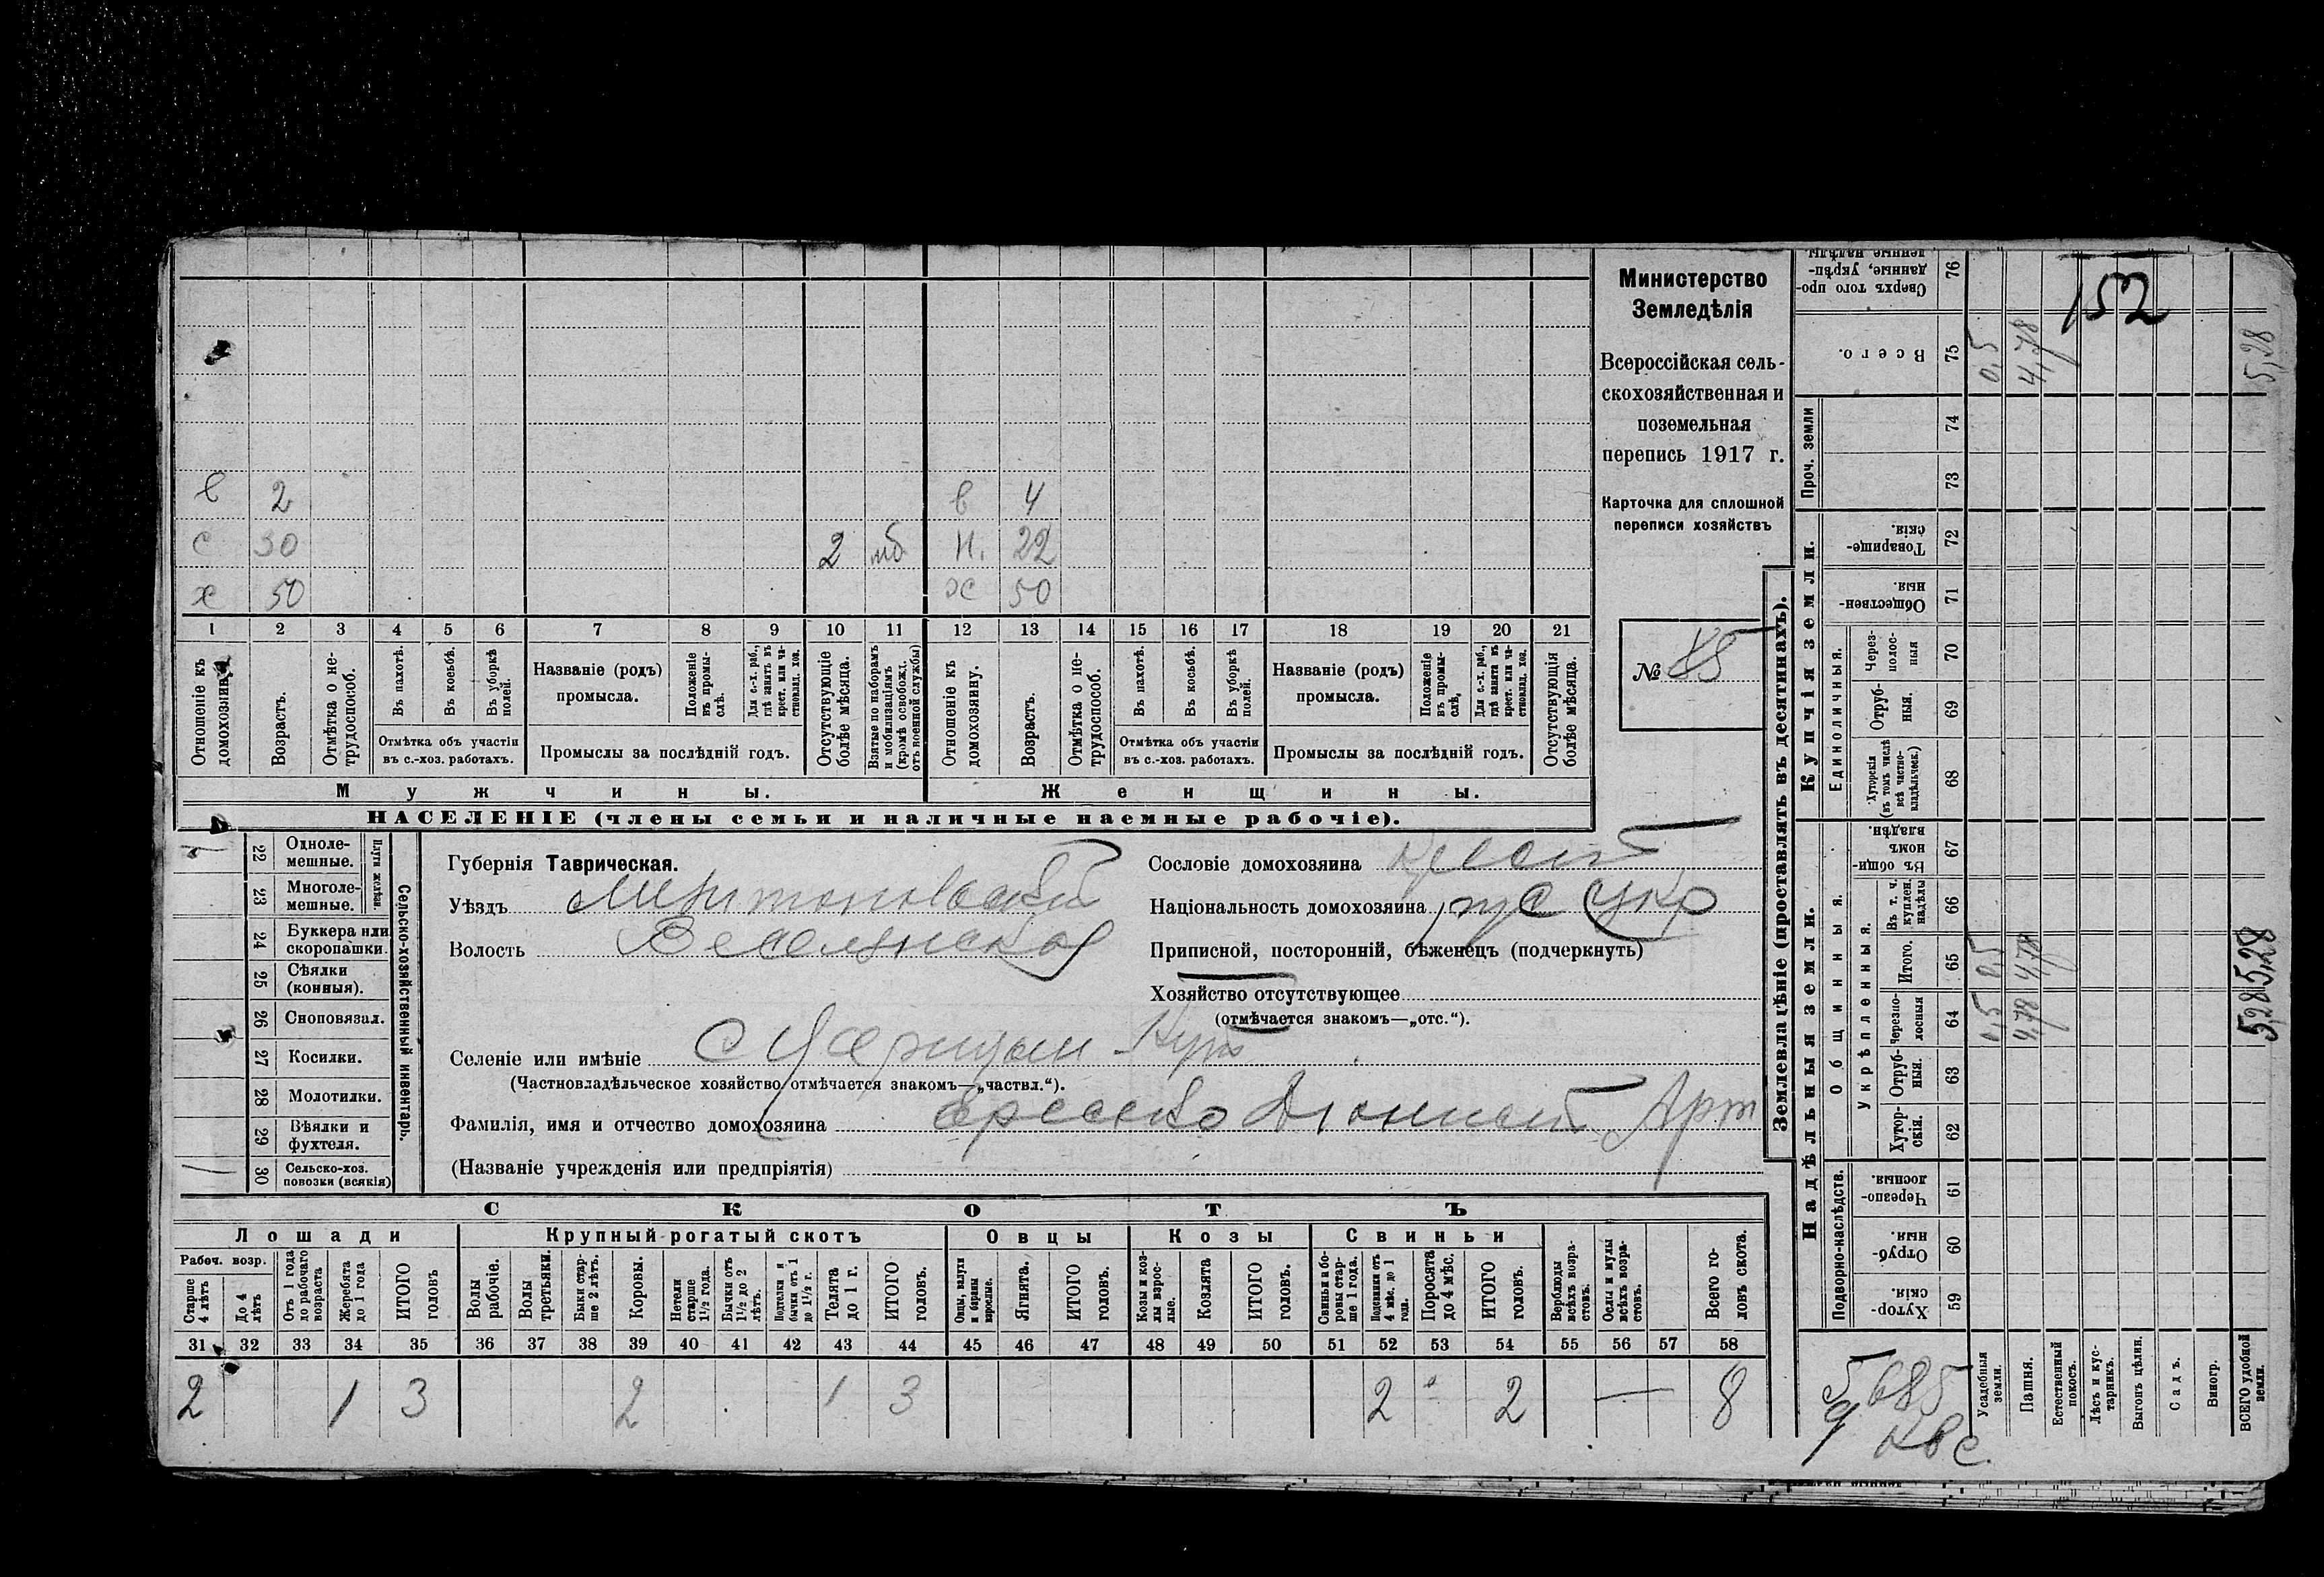 Министерство
Земледѣлія
Всероссійская сель-
скохозяйственная и
поземельная
перепись 1917 г.
Карточка для сплошной
переписи хозяйствъ
№ 85
в 2 в 4
с 30 2 мб н. 22
х 50 ж 50
1 2 3 4 5 6 7 8 9 10 11 12 13 14 15 16 17 18 19 20 21
Отношеніе къ домохозяину.
Возрастъ.
Отмѣтка о не-трудоспособ.
Въ пахотѣ.
Въ косьбѣ.
Въ уборкѣ полей.
Отмѣтка объ участіи
въ с.-хоз. работахъ.
Названіе (родъ)
промысла.
Положеніе въ промы-слѣ.
Для с.-х. раб., гдѣ занятъ въ крест. или ча-стновлад. хоз.
Промыслы за послѣдній годъ.
Отсутствующіе болѣе мѣсяца.
Взятые по наборамъ и мобилизаціямъ (кромѣ освобожд. отъ военной службы)
Отношеніе къ домохозяину.
Возрастъ.
Отмѣтка о не-трудоспособ.
Въ пахотѣ.
Въ косьбѣ.
Въ уборкѣ полей.
Отмѣтка объ участіи
въ с.-хоз. работахъ.
Названіе (родъ)
промысла.
Положеніе въ промы-слѣ,
Для с.-х. раб., гдѣ занята въ крест. или ча-стновлад. хоз.
Промыслы за послѣдній годъ.
Отсутствующія болѣе мѣсяца.
Мужчины. Женщины.
НАСЕЛЕНІЕ (члены семьи и наличные наемные рабочіе).
22 Одноле-мешные.
23 Многоле-мешные.
Плуги желѣзн.
24 Буккера или скоропашки.
25 Сѣялки (конныя).
26 Сноповязал.
27 Косилки.
28 Молотилки.
29 Вѣялки и фухтеля.
30 Сельско-хоз. повозки (всякія)
Сельско-хозяйственный инвентарь.
Губернія Таврическая.
Уѣздъ Мелитопольскій
Волость Веселянской
Селеніе или имѣніе с Царицын Кут
(Частновладѣльческое хозяйство отмѣчается знакомъ—„частвл.“).
Фамилія, имя и отчество домохозяина Арт
(Названіе учрежденія или предпріятія)
Сословіе домохозяина крест
Національность домохозяина рус укр
Приписной, посторонній, бѣженецъ (подчеркнуть)
Хозяйство отсутствующее
(отмѣчается знакомъ—„отс.“).
СКОТЪ
Лошади Крупный рогатый скотъ Овцы Козы Свиньи
Рабоч. возр.
Старше 4 лѣтъ
До 4 лѣтъ
Отъ 1 года до рабочаго возраста
Жеребята до 1 года
ИТОГО головъ
Волы рабочіе.
Волы третьяки.
Быки стар-ше 2 лѣтъ.
Коровы.
Нетели старше 1½ года.
Бычки отъ 1½ до 2 лѣтъ.
Подтелки и бычки отъ 1 до 1½ г.
Телята до 1 г.
ИТОГО головъ.
Овцы, валухи и бараны взрослые.
Ягнята.
ИТОГО головъ.
Козы и коз-лы взрос-лые.
Козлята
ИТОГО головъ.
Свиньи и бо-ровы стар-ше 1 года.
Подсвинки отъ 4 мѣс. до 1 года.
Поросята до 4 мѣс.
ИТОГО головъ.
Верблюды всѣхъ возра-стовъ.
Ослы и мулы всѣхъ возра-стовъ.
Всего го-ловъ скота.
31 32 33 34 35 36 37 38 39 40 41 42 43 44 45 46 47 48 49 50 51 52 53 54 55 56 57 58
2 1 3 2 1 3 2 2 — 8
Землевладѣніе (проставлять въ десятинахъ).
Надѣльныя земли. Купчія земли.
Подворно-наслѣдств.
Общинныя.
Укрѣпленныя.
Единоличныя.
Проч. земли
59 Хутор-скія.
60 Отруб-ныя.
61 Черезпо-лосныя.
62 Хутор-скія.
63 Отруб-ныя.
64 Черезпо-лосныя
65 Итого.
66 Въ т. ч. куплен. надѣлы
67 Въ общин-номъ владѣн.
68 Хуторскія (въ томъ числѣ всѣ частно-владѣльческ.)
69 Отруб-ныя.
70 Через-полос-ныя
71 Обществен-ныя
72 Товарище-скія.
73
74
75 Всего.
76 Сверхъ того про-данные, укрѣп-ленные надѣлы
Усадебныя земли. 0,5 0,5 0,5
Пашня. 4,78 4,78 4,78
Естественный покосъ.
Лѣсъ и кус-тарникъ.
Выгонъ цѣлин.
Садъ.
Виногр.
ВСЕГО удобной земли. 5,28 5,28 5,28
152